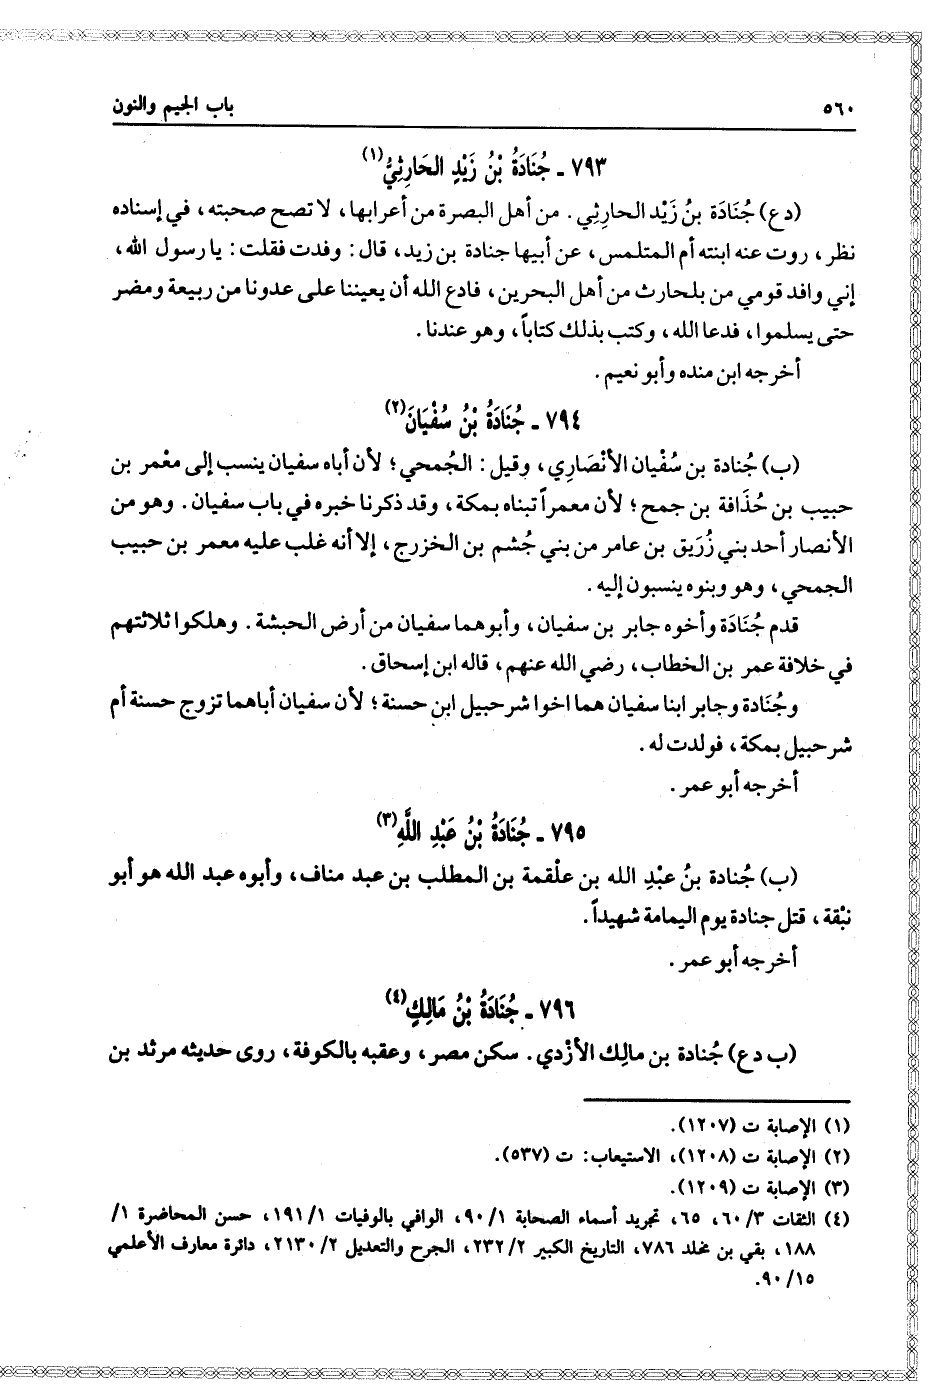 ٥٦٠ باب الجيم والنون
٧٩٣ - جُنَادَةُ بْنُ زَيْدٍ الحَارِثِيُّ(١)
(دع) جُنَادَة بنُ زَيْد الحارِثي. من أهل البصرة من أعرابها، لا تصح صحبته، في إسناده
نظر، روت عنه ابنته أم المتلمس، عن أبيها جنادة بن زيد، قال: وفدت فقلت: يا رسول الله،
إني وافد قومي من بلحارث من أهل البحرين، فادع الله أن يعيننا على عدونا من ربيعة ومضر
حتى يسلموا، فدعا الله، وكتب بذلك كتاباً، وهو عندنا.
أخرجه ابن منده وأبو نعيم.
٧٩٤ - جُنَادَةُ بْنُ سُفْيَانَ(٢)
(ب) جُنادة بن سُفْيان الأنْصَاري، وقيل: الجُمحي؛ لأن أباه سفيان ينسب إلى معْمر بن
حبيب بن حُذَافة بن جمح؛ لأن معمراً تبناه بمكة، وقد ذكرنا خبره في باب سفيان. وهو من
الأنصار أحد بني زُرَيق بن عامر من بني جُشم بن الخزرج، إلا أنه غلب عليه معمر بن حبيب
الجمحي، وهو وبنوه ينسبون إليه.
قدم جُنَادَة وأخوه جابر بن سفيان، وأبوهما سفيان من أرض الحبشة. وهلكوا ثلاثتهم
في خلافة عمر بن الخطاب، رضي الله عنهم، قاله ابن إسحاق.
وجُنَادة وجابر ابنا سفيان هما اخوا شرحبيل ابن حسنة؛ لأن سفيان أباهما تزوج حسنة أم
شرحبيل بمكة، فولدت له.
أخرجه أبو عمر.
٧٩٥ - جُنَادَةُ بْنُ عَبْدِ اللَّهِ(٣)
(ب) جُنادة بنُ عبْدِ الله بن علْقمة بن المطلب بن عبد مناف، وأبوه عبد الله هو أبو
نبْقة، قتل جنادة يوم اليمامة شهيداً.
أخرجه أبو عمر.
٧٩٦ - جُنَادَةُ بْنُ مَالِكٍ(٤)
(ب دع) جُنادة بن مالِك الأزْدي. سكن مصر، وعقبه بالكوفة، روى حديثه مرثد بن
(١) الإصابة ت (١٢٠٧).
(٢) الإصابة ت (١٢٠٨)، الاستيعاب: ت (٥٣٧).
(٣) الإصابة ت (١٢٠٩).
(٤) الثقات ٣/ ٦٠، ٦٥، تجريد أسماء الصحابة ١/ ٩٠، الوافي بالوفيات ١/ ١٩١، حسن المحاضرة ١/
١٨٨، بقي بن مخلد ٧٨٦، التاريخ الكبير ٢/ ٢٣٢، الجرح والتعديل ٢/ ٢١٣٠، دائرة معارف الأعلمي
١٥/ ٩٠.